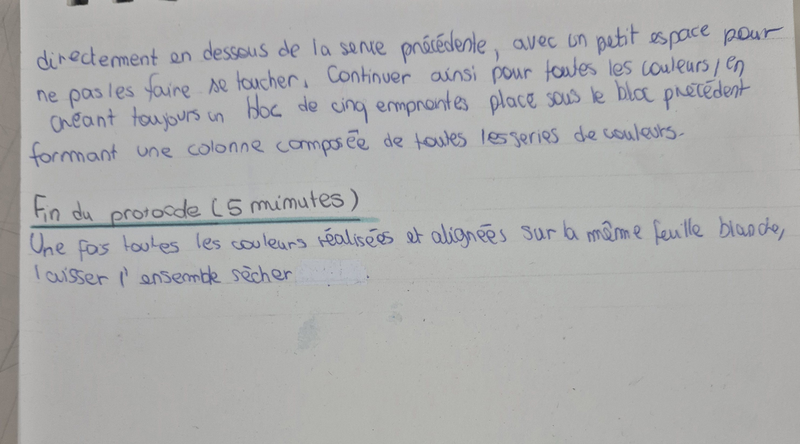 directement en dessous de la serie précédente, avec un petit espace pour
ne pas les faire se toucher. Continuer ainsi pour toutes les couleurs, en
créant toujours un bloc de cinq empreintes place sous le bloc précédent
formant une colonne composée de toutes les series de couleurs.
Fin du protocole (5 minutes)
Une fois toutes les couleurs réalisées et alignées sur la même feuille blanche,
laisser l'ensemble sècher.